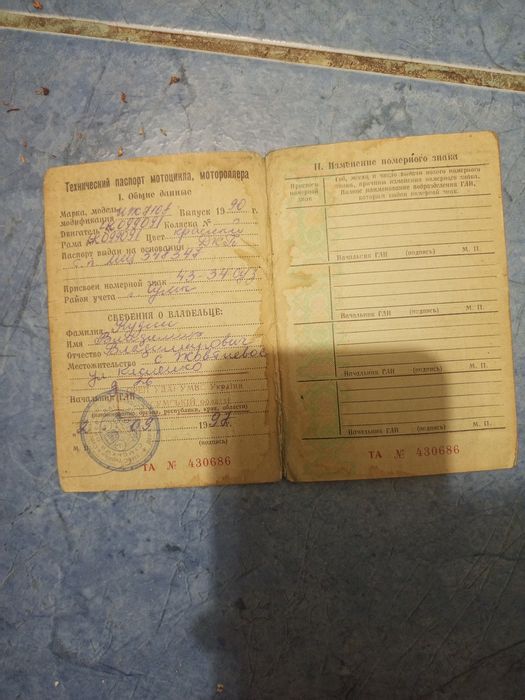 Технический паспорт мотоцикла, мотороллера
I. Общие данные
Марка, модель
модификация Выпуск 1990 г.
Двигатель № К099091 Коляска №
Рама № К099091 Цвет красный
Паспорт выдан на основании ДКП
348347
Присвоен номерной знак 43-34 СУЗ
Район учета г. Сумы
СВЕДЕНИЯ О ВЛАДЕЛЬЦЕ:
Фамилия
Имя Владимир
Отчество Владимирович
Местожительство с.
ул
Начальник ГАИ УМВ України
Сумській області
(наименование органа, республики, края, области)
03 1992
М. П. (подпись)
ТА № 430686
II. Изменение номерного знака
Присвоен номерной знак
Год, месяц и число выдачи нового номерного
знака, причина изменения номерного знака.
Полное наименование подразделения ГАИ,
которым выдан номерной знак
Начальник ГАИ (подпись) М. П.
Начальник ГАИ (подпись) М. П.
Начальник ГАИ (подпись) М. П.
Начальник ГАИ (подпись) М. П.
ТА № 430686